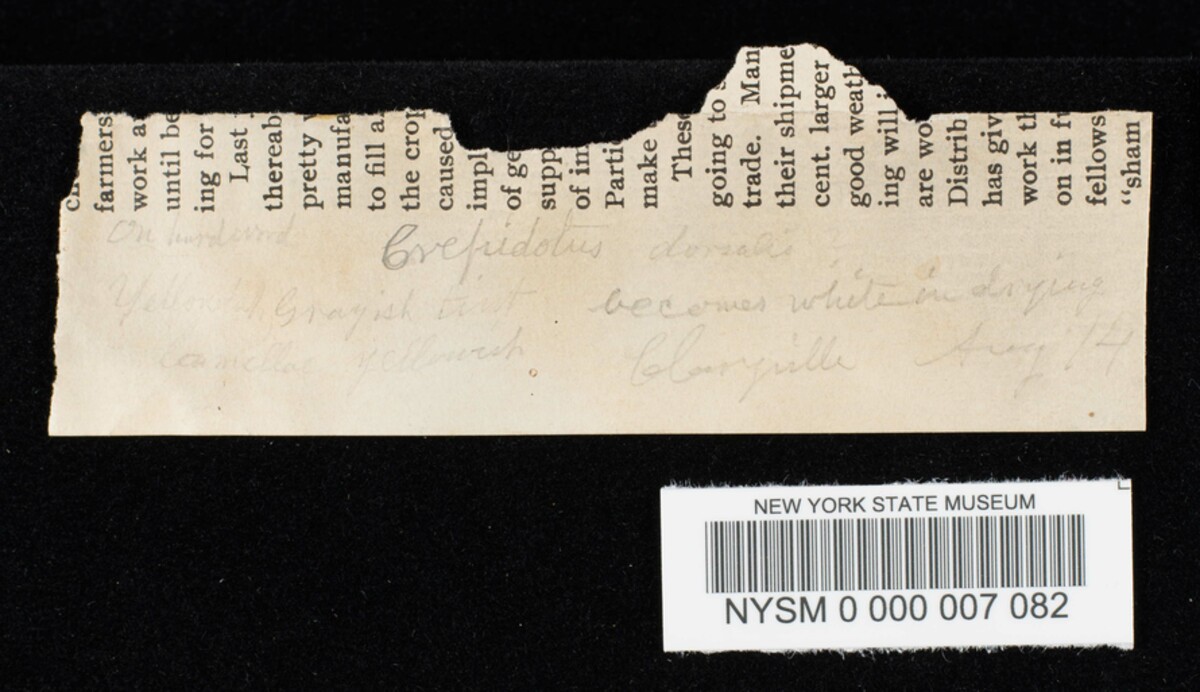 cl
farmers
work a
until be
ing for
Last
thereab
pretty
manufa
to fill a
the crop
caused
impl
of ge
supp
of im
Parti
make
These
going to s
trade. Man
their shipme
cent. larger
good weath
ing will i
are wo
Distrib
has giv
work th
on in fu
fellows
"sham
On hardwood Crepidotus dorsalis
Grayish tint becomes white in drying
Lamellae yellowish Claryville Aug 14
NEW YORK STATE MUSEUM
NYSM 0 000 007 082